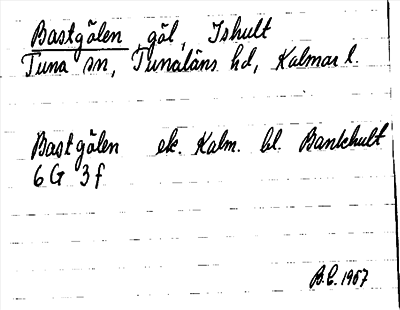 Bastgölen, göl, Ishult
Tuna sn, Tunaläns hd, Kalmar l.
Bastgölen ek. Kalm. bl. Bankhult
6G 3f
B.E. 1967